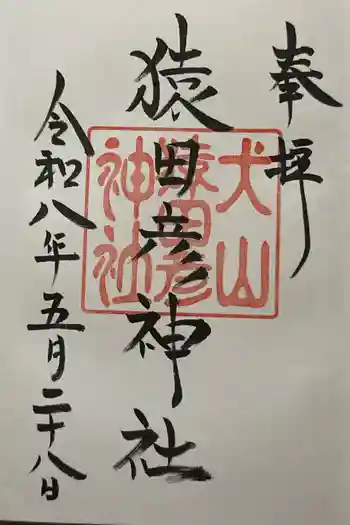 奉拝
猿田彦神社
令和八年五月二十八日
犬山
猿田彦
神社